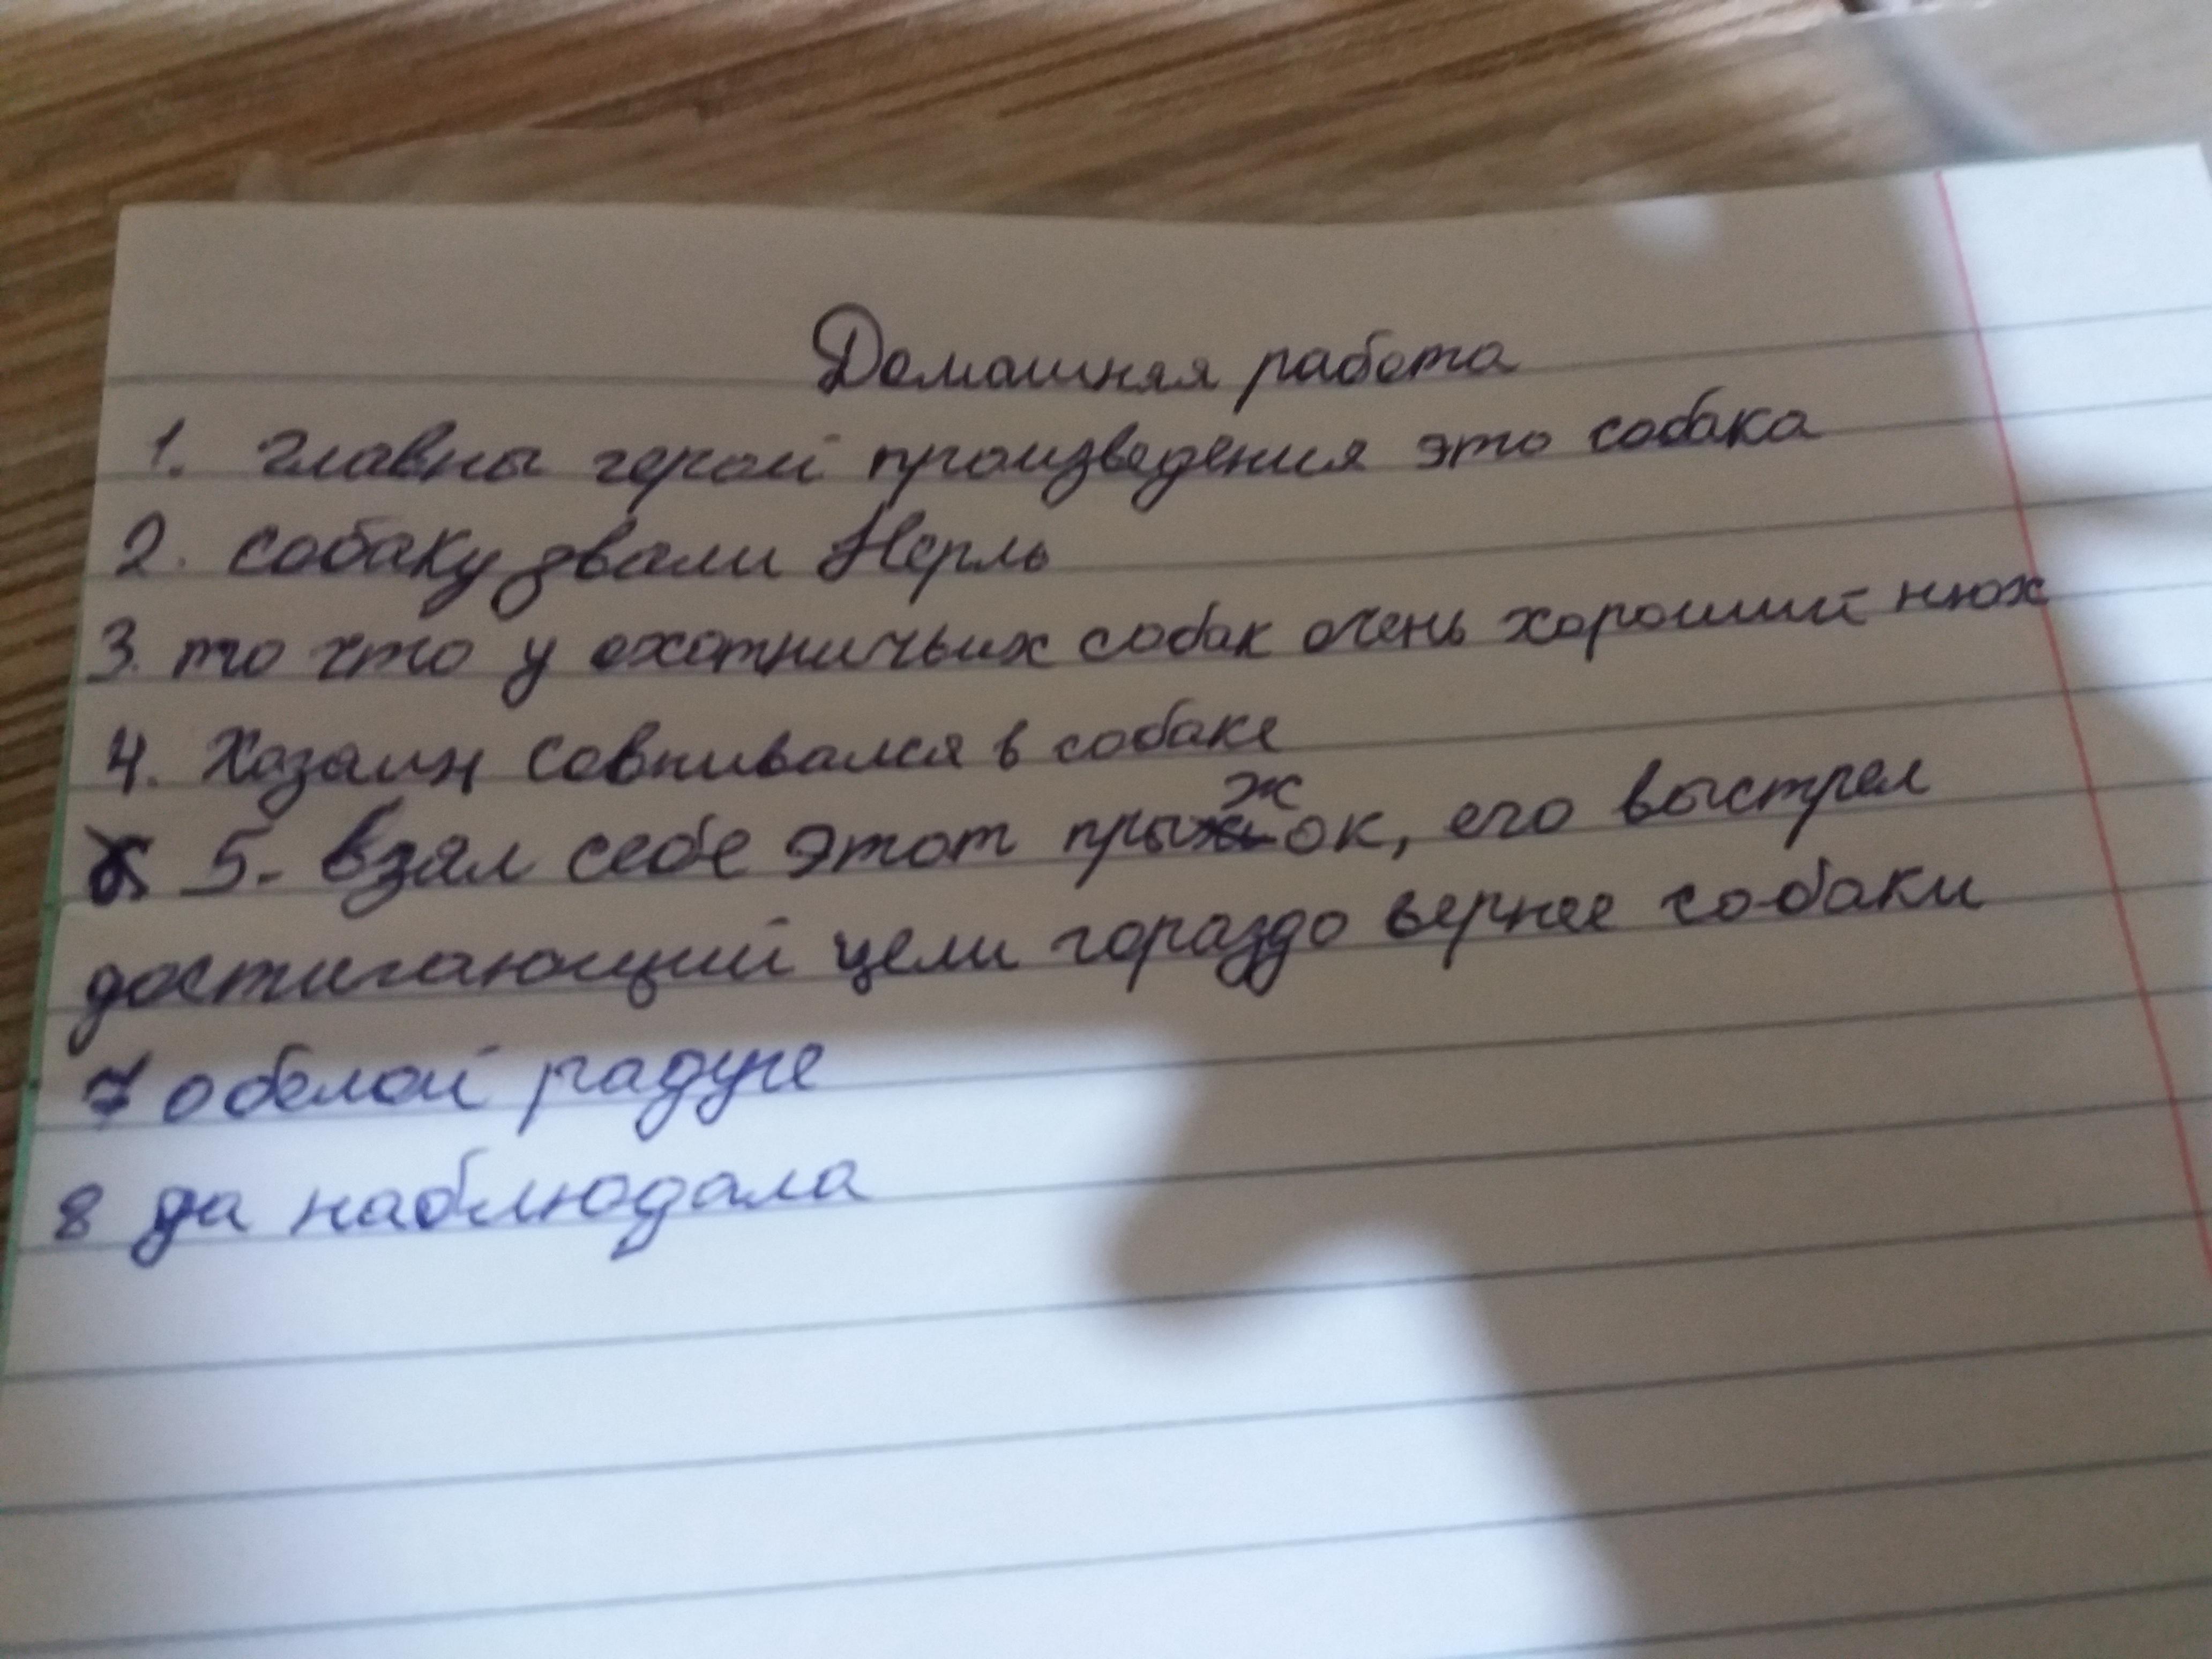 Домашняя работа
1. главны герой произведения это собака
2. собаку звали Нерль
3. то что у охотничьих собак очень хороший нюх
4. Хозаин совпивался в собаке
5. взял себе этот прыжок, его выстрел
достигающий цели гораздо вернее собаки
7 о белой радуге
8 да наблюдала